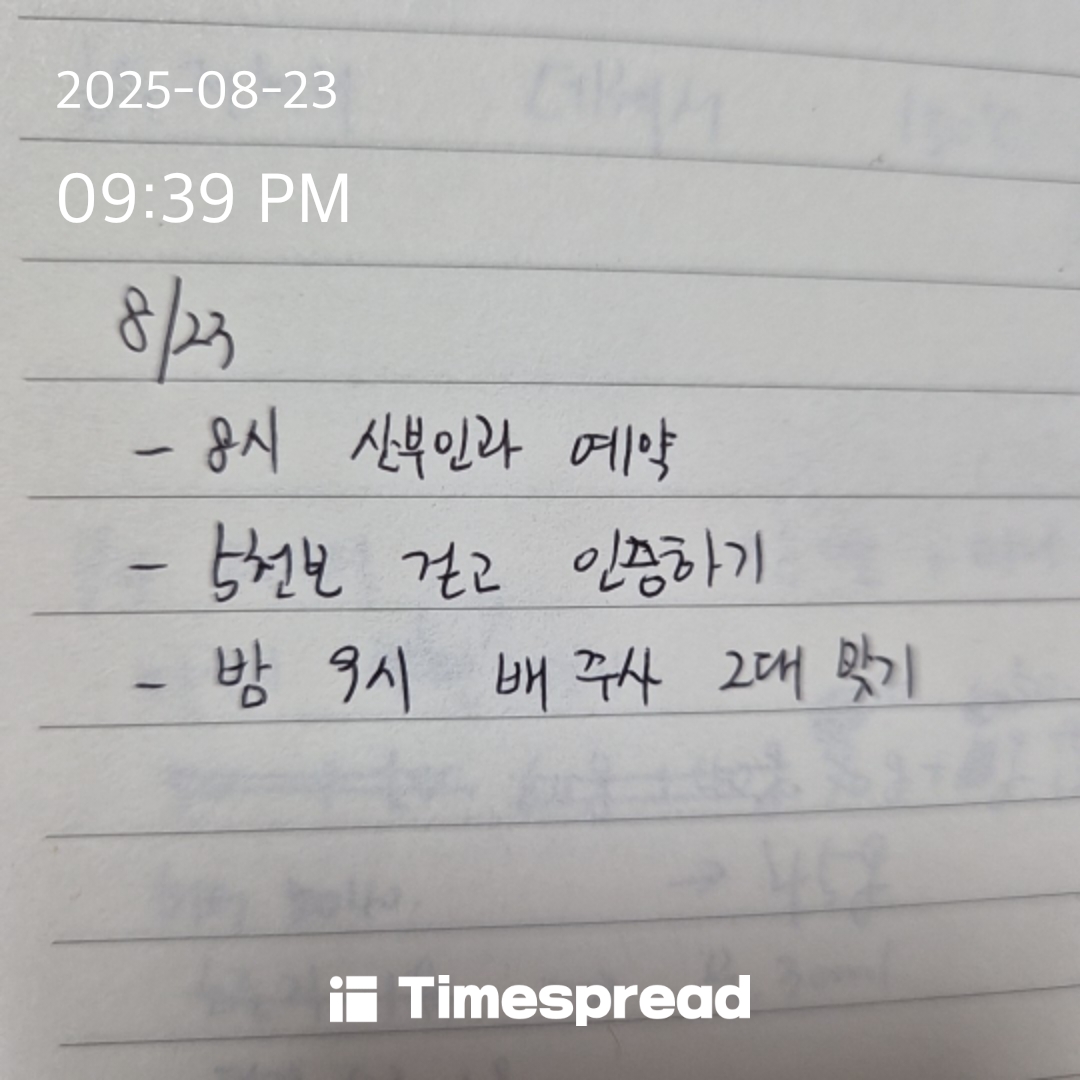 2025-08-23
09:39 PM
8/23
- 8시 산부인과 예약
- 5천보 걷고 인증하기
- 밤 9시 배 주사 2대 맞기
Timespread